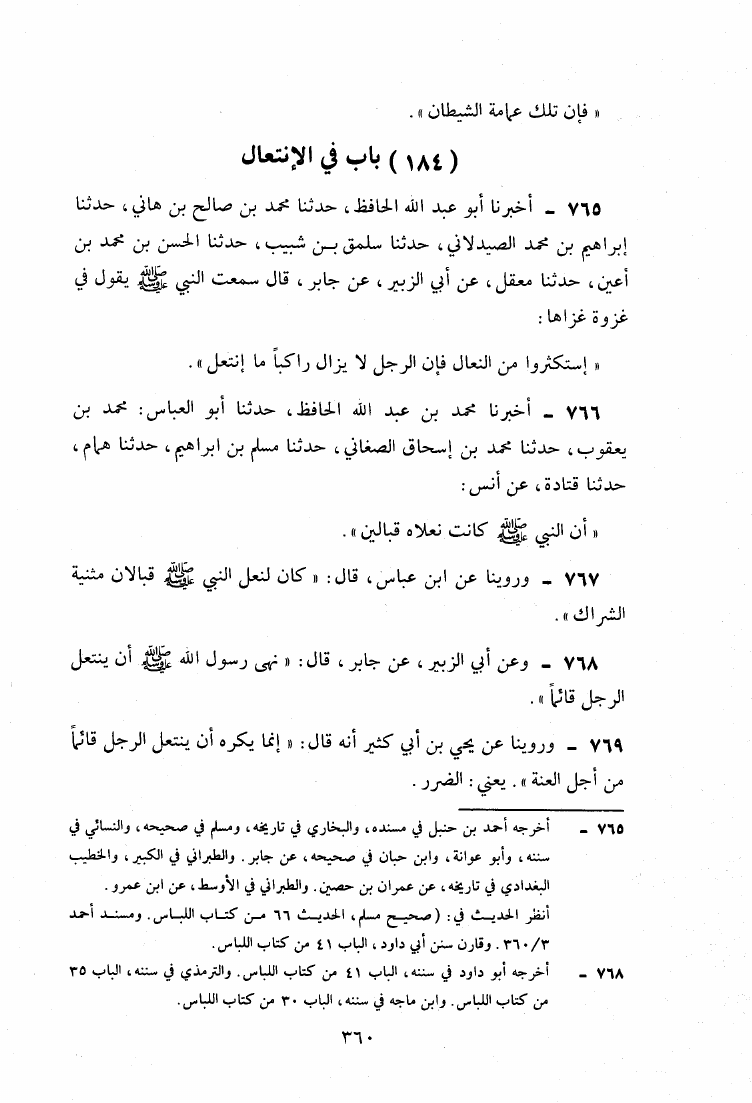 « فإن تلك عمامة الشيطان » .
( ١٨٤ ) باب في الإنتعال
٧٦٥ ـ أخبرنا أبو عبد الله الحافظ، حدثنا محمد بن صالح بن هاني، حدثنا
إبراهيم بن محمد الصيدلاني، حدثنا سلمق بـن شبيب، حدثنا الحسن بن محمد بن
أعين، حدثنا معقل، عن أبي الزبير، عن جابر، قال سمعت النبي ﷺ يقول في
غزوة غزاها:
« إستكثروا من النعال فإن الرجل لا يزال راكباً ما إنتعل ».
٧٦٦ ـ أخبرنا محمد بن عبد الله الحافظ، حدثنا أبو العباس: محمد بن
يعقوب، حدثنا محمد بن إسحاق الصغاني، حدثنا مسلم بن ابراهيم، حدثنا همام،
حدثنا قتادة، عن أنس:
« أن النبي ﷺ كانت نعلاه قبالين ».
٧٦٧ ـ وروينا عن ابن عباس، قال: « كان لنعل النبي ﷺ قبالان مثنية
الشراك ».
٧٦٨ ـ وعن أبي الزبير، عن جابر، قال: « نهى رسول الله ﷺ أن ينتعل
الرجل قائماً ».
٧٦٩ ـ وروينا عن يحي بن أبي كثير أنه قال: « إنما يكره أن ينتعل الرجل قائماً
من أجل العنة ». يعني: الضرر.
٧٦٥ ـ أخرجه أحمد بن حنبل في مسنده، والبخاري في تاريخه، ومسلم في صحيحه، والنسائي في
سننه، وأبو عوانة، وابن حبان في صحيحه، عن جابر. والطبراني في الكبير، والخطيب
البغدادي في تاريخه، عن عمران بن حصين. والطبراني في الأوسط، عن ابن عمرو.
أنظر الحديـث في: (صحيـح مسلم، الحديـث ٦٦ مـن كتـاب اللبـاس. ومسنـد أحمد
٣٦٠/٣. وقارن سنن أبي داود، الباب ٤١ من كتاب اللباس.
٧٦٨ ـ أخرجه أبو داود في سننه، الباب ٤١ من كتاب اللباس. والترمذي في سننه، الباب ٣٥
من كتاب اللباس. وابن ماجه في سننه، الباب ٣٠ من كتاب اللباس.
٣٦٠